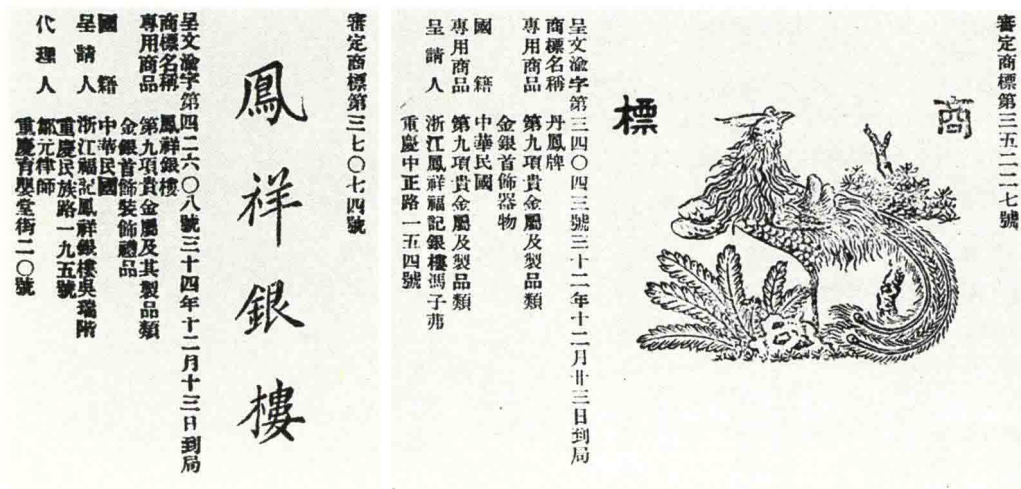 審定商標第三五二二七號
商標
呈文渝字第三四〇四三號三十二年十二月廿三日到局
商標名稱 丹鳳牌
專用商品 第九項貴金屬及製品類
金銀首飾器物
國籍 中華民國
呈請人 浙江鳳祥福記銀樓馮子茀
重慶中正路一五四號
審定商標第三七〇七四號
鳳祥銀樓
呈文渝字第四二六〇八號三十四年十二月十三日到局
商標名稱 鳳祥銀樓
專用商品 第九項貴金屬及其製品類
金銀首飾裝飾禮品
國籍 中華民國
呈請人 浙江福記鳳祥銀樓吳瑞階
重慶民族路一九五號
代理人 鄒元律師
重慶育嬰堂街二〇號